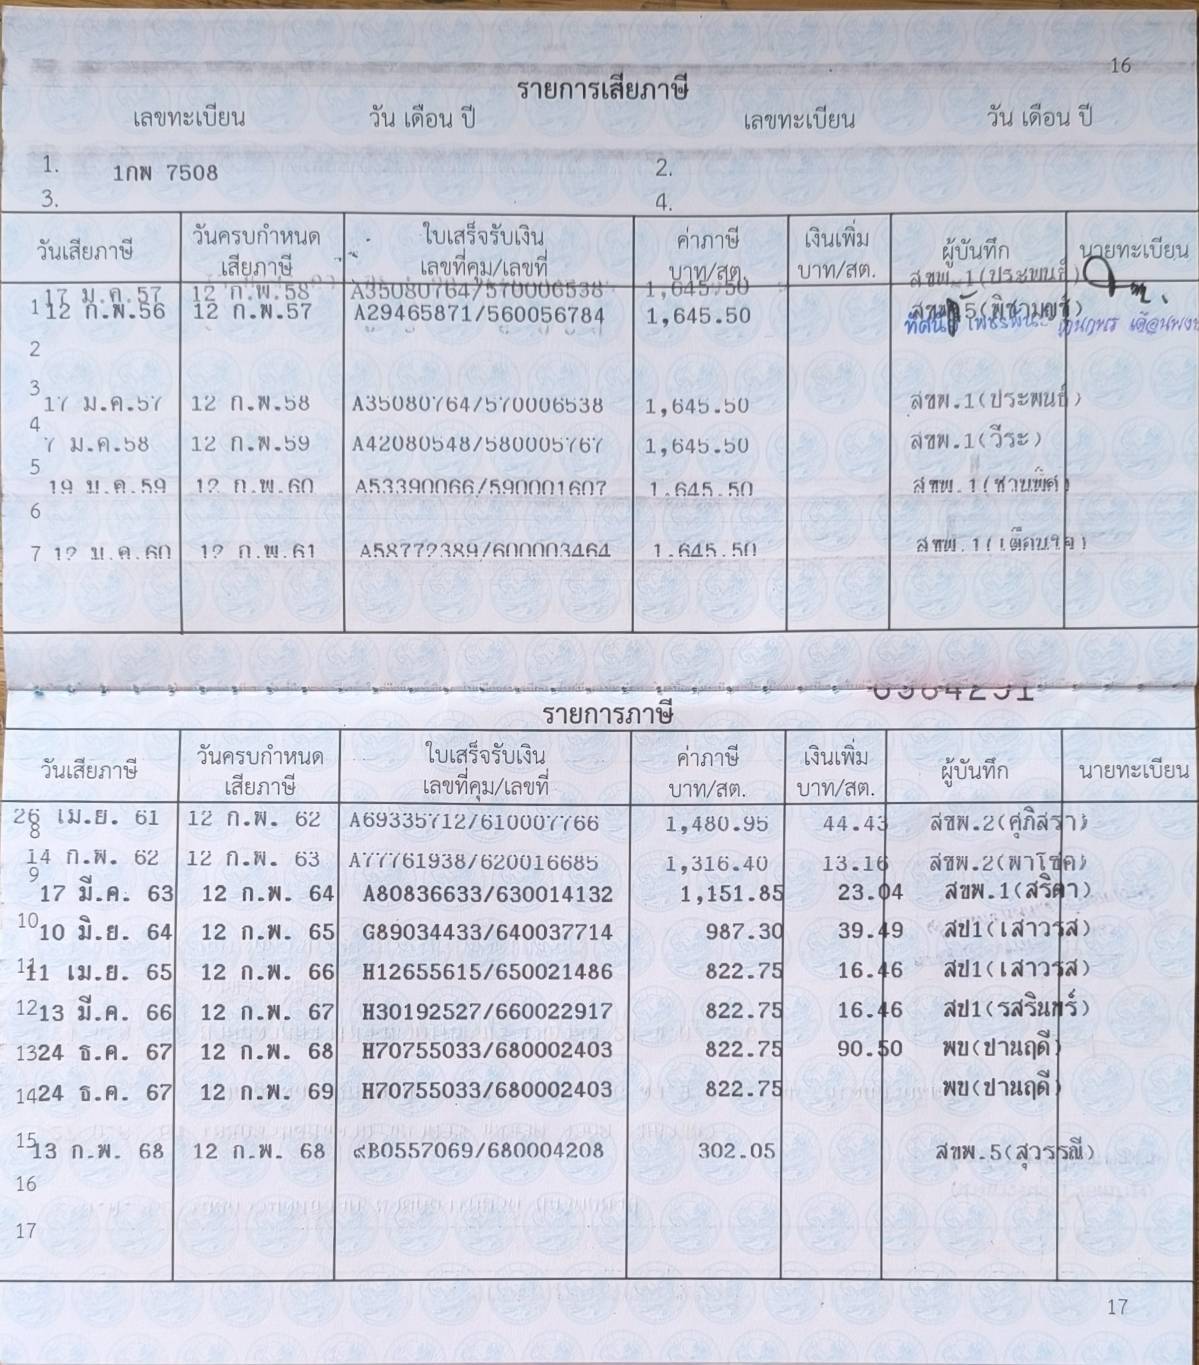 16
รายการเสียภาษี
เลขทะเบียน วัน เดือน ปี เลขทะเบียน วัน เดือน ปี
1. 1กพ 7508 2.
3. 4.
วันเสียภาษี วันครบกำหนด เสียภาษี ใบเสร็จรับเงิน เลขที่คุม/เลขที่ ค่าภาษี บาท/สต. เงินเพิ่ม บาท/สต. ผู้บันทึก นายทะเบียน
17 ม.ค.57 12 ก.พ.58 A35080764/570006538 1,645.50 สขพ.1(ประพนธ์)
1 12 ก.พ.56 12 ก.พ.57 A29465871/560056784 1,645.50
2
3
17 ม.ค.57 12 ก.พ.58 A35080764/570006538 1,645.50 สขพ.1(ประพนธ์)
4
7 ม.ค.58 12 ก.พ.59 A42080548/580005767 1,645.50 สขพ.1(วีระ)
5
19 ม.ค.59 12 ก.พ.60 A53390066/590001607 1,645.50 สขพ.1(ชานพิศ)
6
7 12 ม.ค.60 12 ก.พ.61 A58772389/600003464 1,645.50 สขพ.1(เตือนใจ)
รายการภาษี
วันเสียภาษี วันครบกำหนด เสียภาษี ใบเสร็จรับเงิน เลขที่คุม/เลขที่ ค่าภาษี บาท/สต. เงินเพิ่ม บาท/สต. ผู้บันทึก นายทะเบียน
26 เม.ย. 61 12 ก.พ. 62 A69335712/610007766 1,480.95 44.43 สขพ.2(ศุภิสรา)
8
14 ก.พ. 62 12 ก.พ. 63 A77761938/620016685 1,316.40 13.16 สขพ.2(พาโชค)
9
17 มี.ค. 63 12 ก.พ. 64 A80836633/630014132 1,151.85 23.04 สขพ.1(สริตา)
10 10 มิ.ย. 64 12 ก.พ. 65 G89034433/640037714 987.30 39.49 สป1(เสาวรส)
11 11 เม.ย. 65 12 ก.พ. 66 H12655615/650021486 822.75 16.46 สป1(เสาวรส)
12 13 มี.ค. 66 12 ก.พ. 67 H30192527/660022917 822.75 16.46 สป1(รสรินทร์)
13 24 ธ.ค. 67 12 ก.พ. 68 H70755033/680002403 822.75 90.50 พบ(ปานฤดี)
14 24 ธ.ค. 67 12 ก.พ. 69 H70755033/680002403 822.75 พบ(ปานฤดี)
15 13 ก.พ. 68 12 ก.พ. 68 ๙B0557069/680004208 302.05 สขพ.5(สุวรรณี)
16
17
17